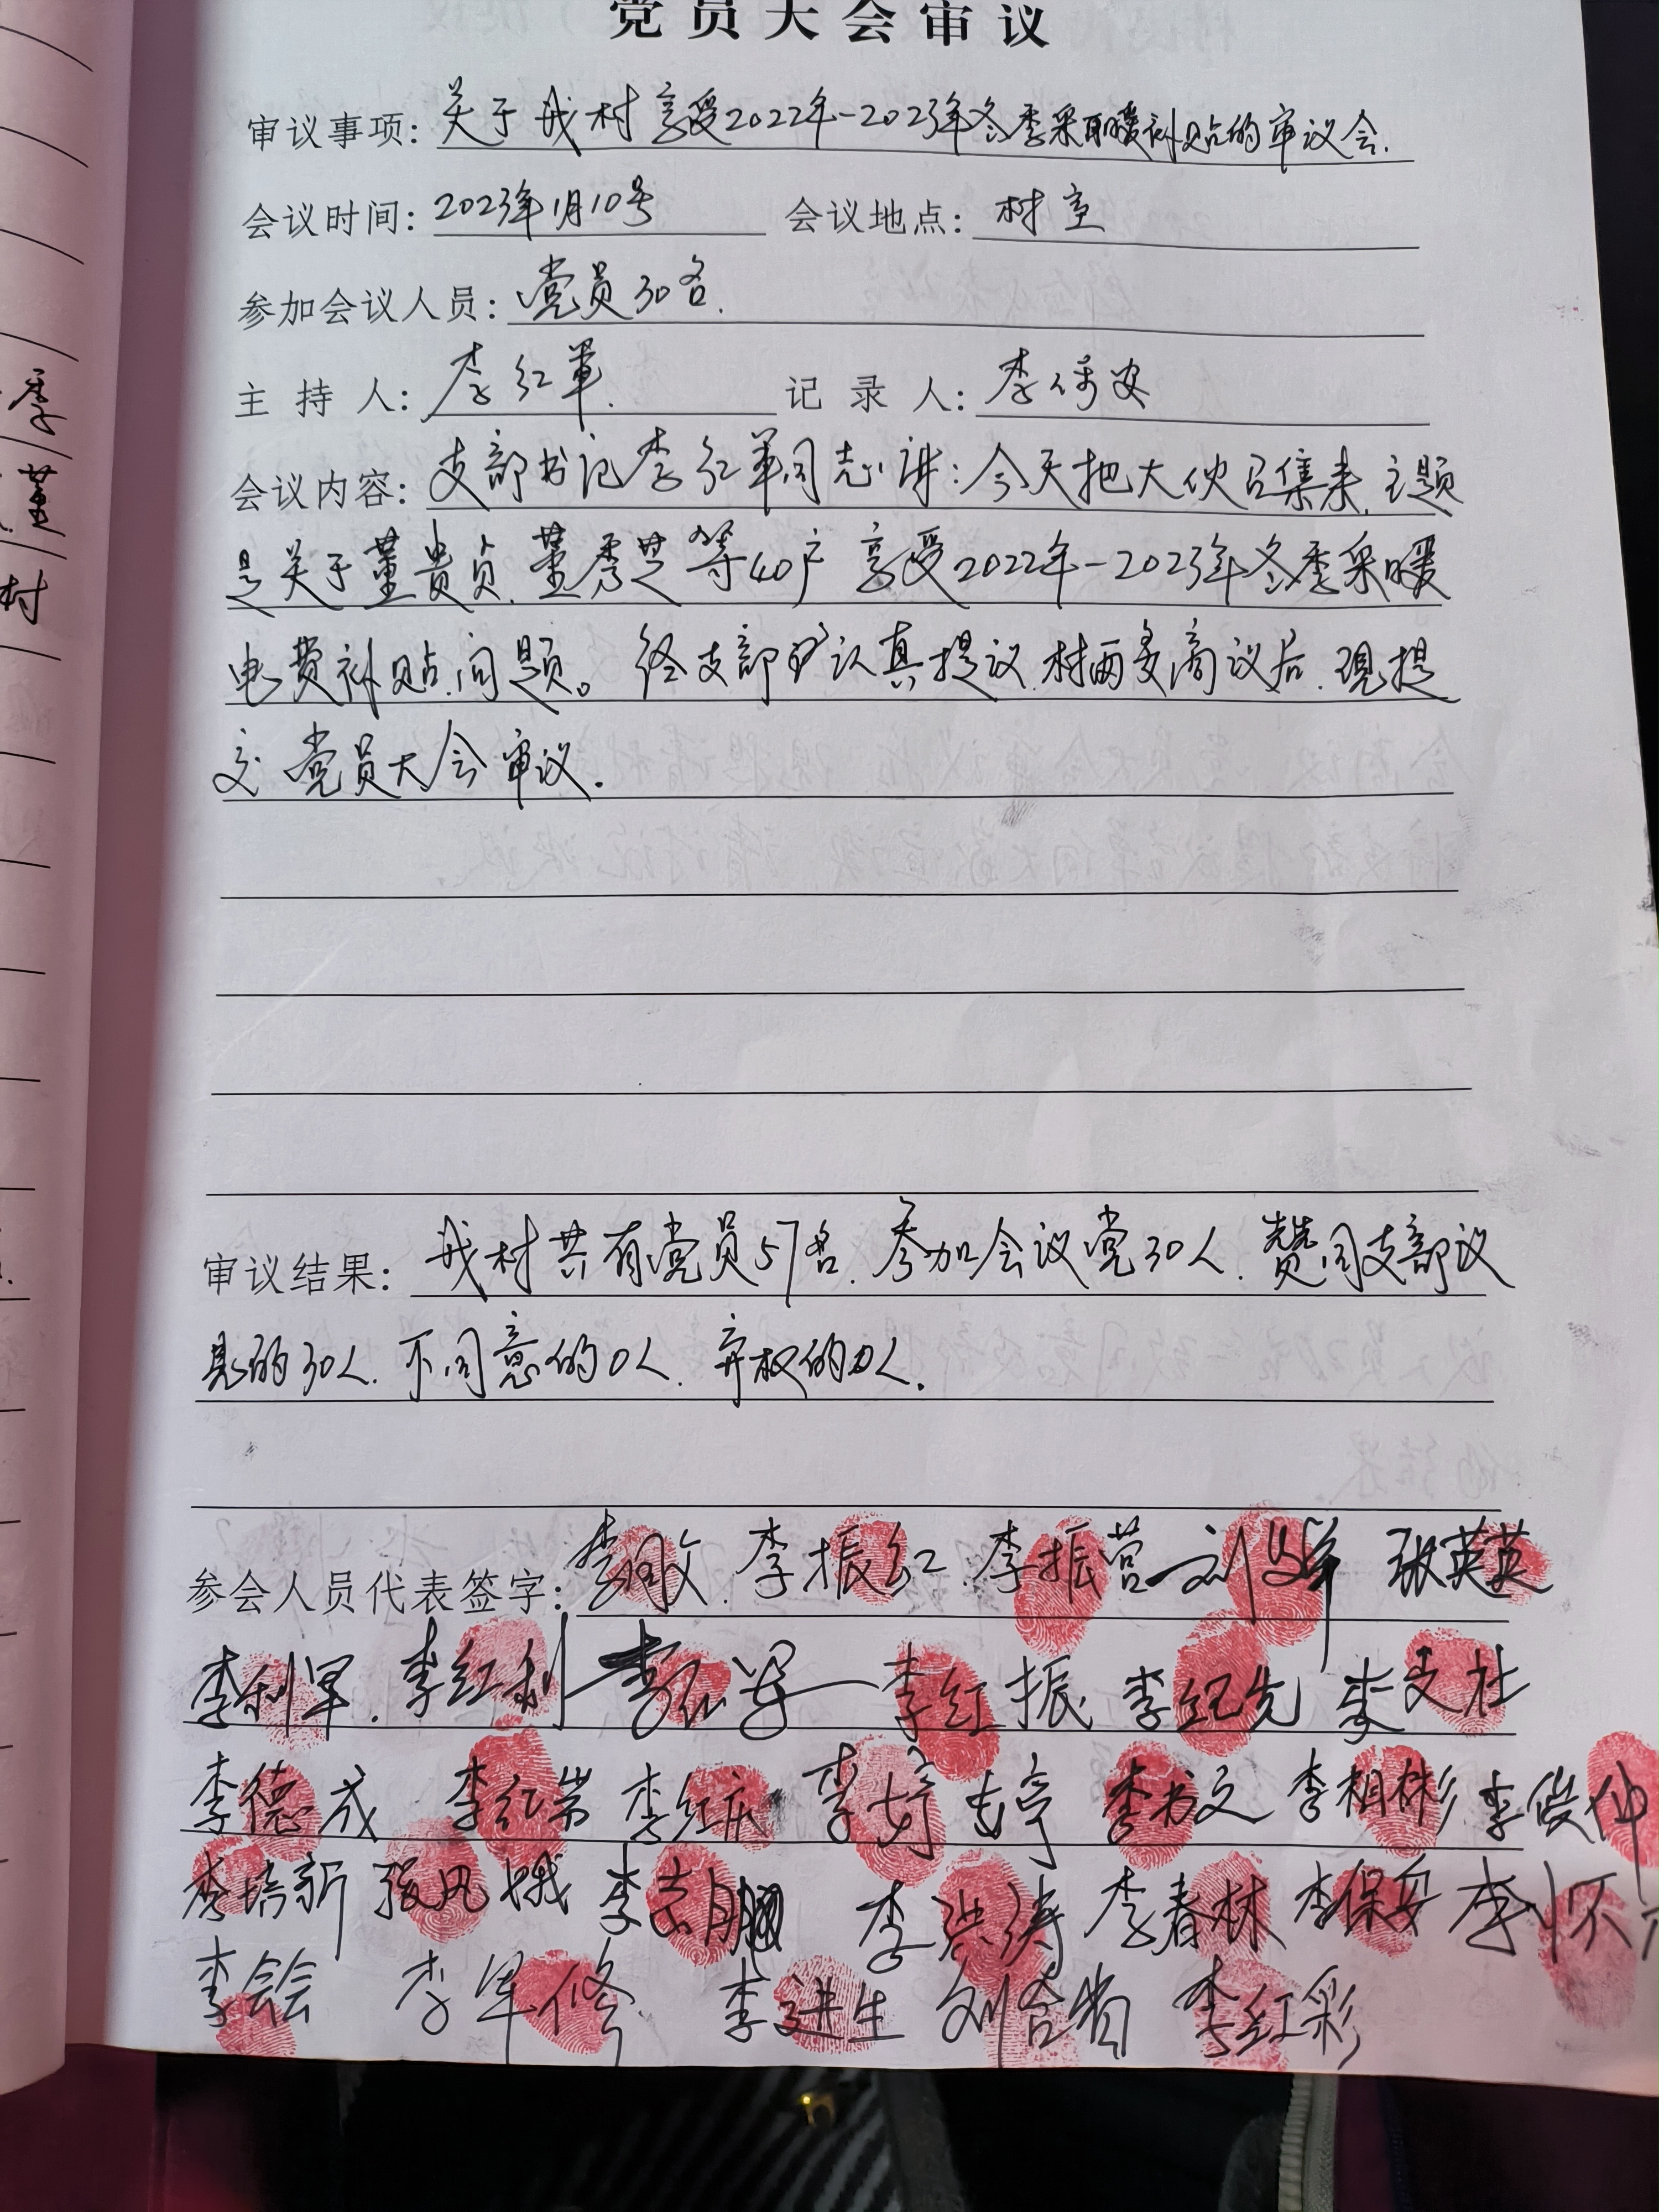 党员大会审议
审议事项: 关于我村享受2022年-2023年冬季采暖补贴的审议会.
会议时间: 2023年1月10号 会议地点: 村室
参加会议人员: 党员30名.
主持人: 李红军. 记录人: 李保安
会议内容: 支部书记李红军同志讲: 今天把大伙召集来, 主题
是关于董贵贞. 董秀芝等40户 享受2022年-2023年冬季采暖
电费补贴问题。经支部认真提议, 村两委商议后, 现提
交党员大会审议.
审议结果: 我村共有党员57名, 参加会议党30人, 赞同支部议
的30人. 不同意的0人. 弃权的0人.
参会人员代表签字: 李振红 李振营 张英英
李利军. 李红利 李红军 李红振 李纪先 李文社
李德成 李红岩 李红庆 李书文 李相彬 李俊仲
李培新 张凤娥 李志鹏 李洪涛 李春林 李保安 李怀
李会会 李军修 李进生 刘合省 李红彩
季
董
村